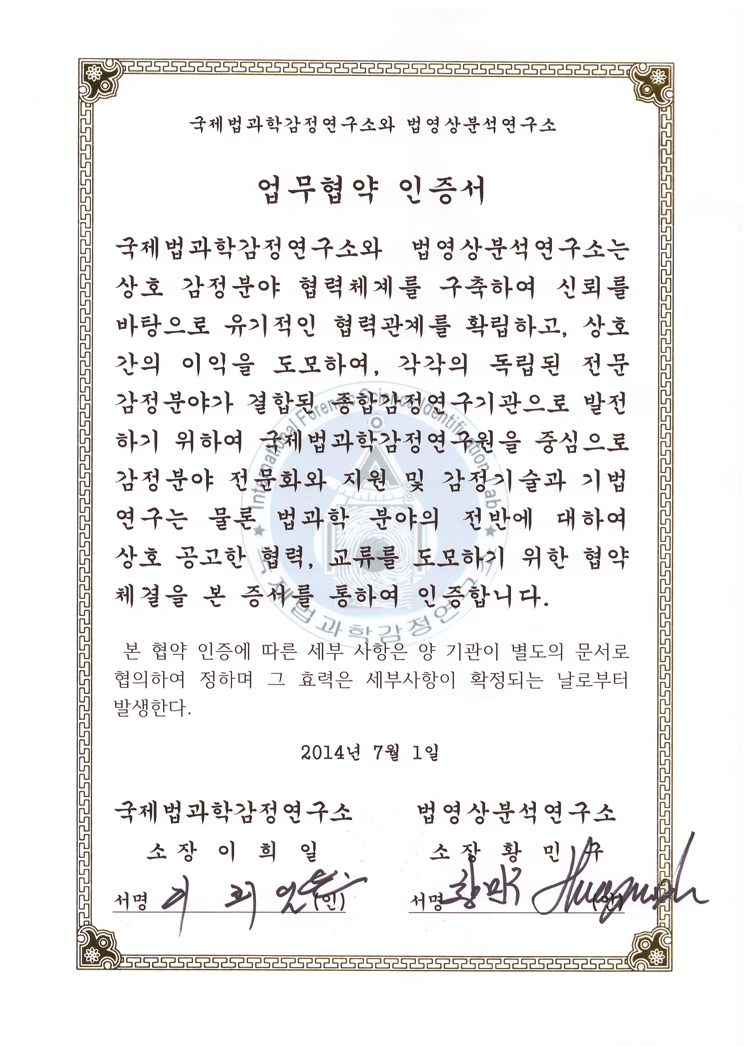 국제법과학감정연구소와 법영상분석연구소
업무협약 인증서
국제법과학감정연구소와 법영상분석연구소는
상호 감정분야 협력체계를 구축하여 신뢰를
바탕으로 유기적인 협력관계를 확립하고, 상호
간의 이익을 도모하여, 각각의 독립된 전문
감정분야가 결합된 종합감정연구기관으로 발전
하기 위하여 국제법과학감정연구원을 중심으로
감정분야 전문화와 지원 및 감정기술과 기법
연구는 물론 법과학 분야의 전반에 대하여
상호 공고한 협력, 교류를 도모하기 위한 협약
체결을 본 증서를 통하여 인증합니다.
International Forensic Science Identification Lab
국제법과학감정연구소
본 협약 인증에 따른 세부 사항은 양 기관이 별도의 문서로
협의하여 정하며 그 효력은 세부사항이 확정되는 날로부터
발생한다.
2014년 7월 1일
국제법과학감정연구소 법영상분석연구소
소장 이 희 일 소장 황 민 구
서명 이희일 (인) 서명 황민구